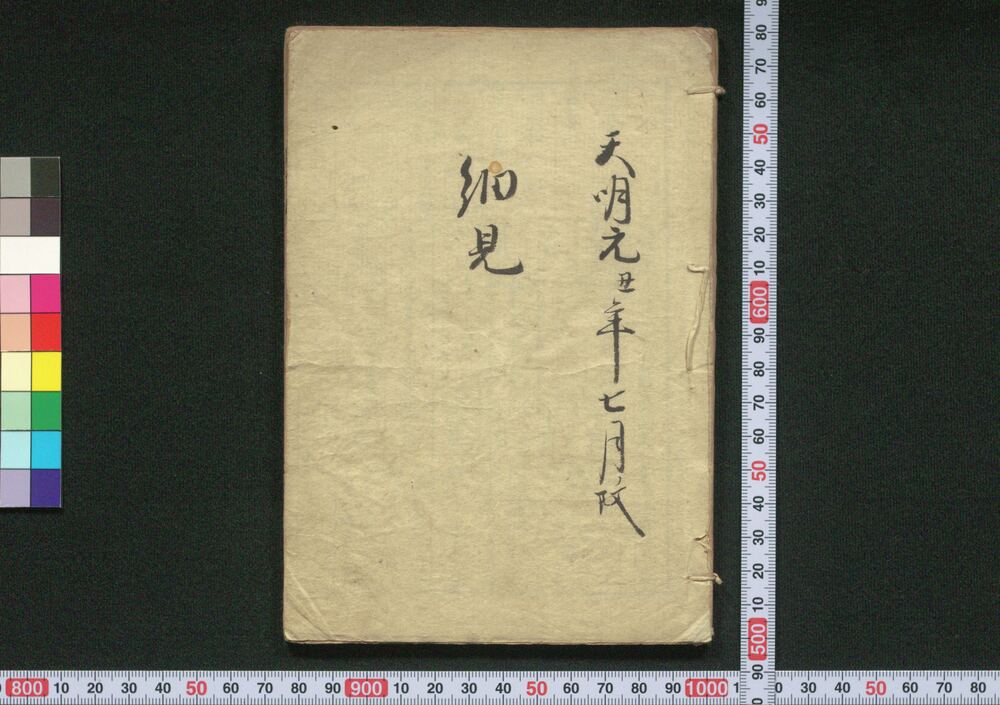 天明元丑年七月改
細見
90
80
70
60
50
40
30
20
10
600
90
80
70
60
50
40
30
20
10
500
90
800 10 20 30 40 50 60 70 80 90 900 10 20 30 40 50 60 70 80 90 1000 1
0 20 30 40 50 60 70 80